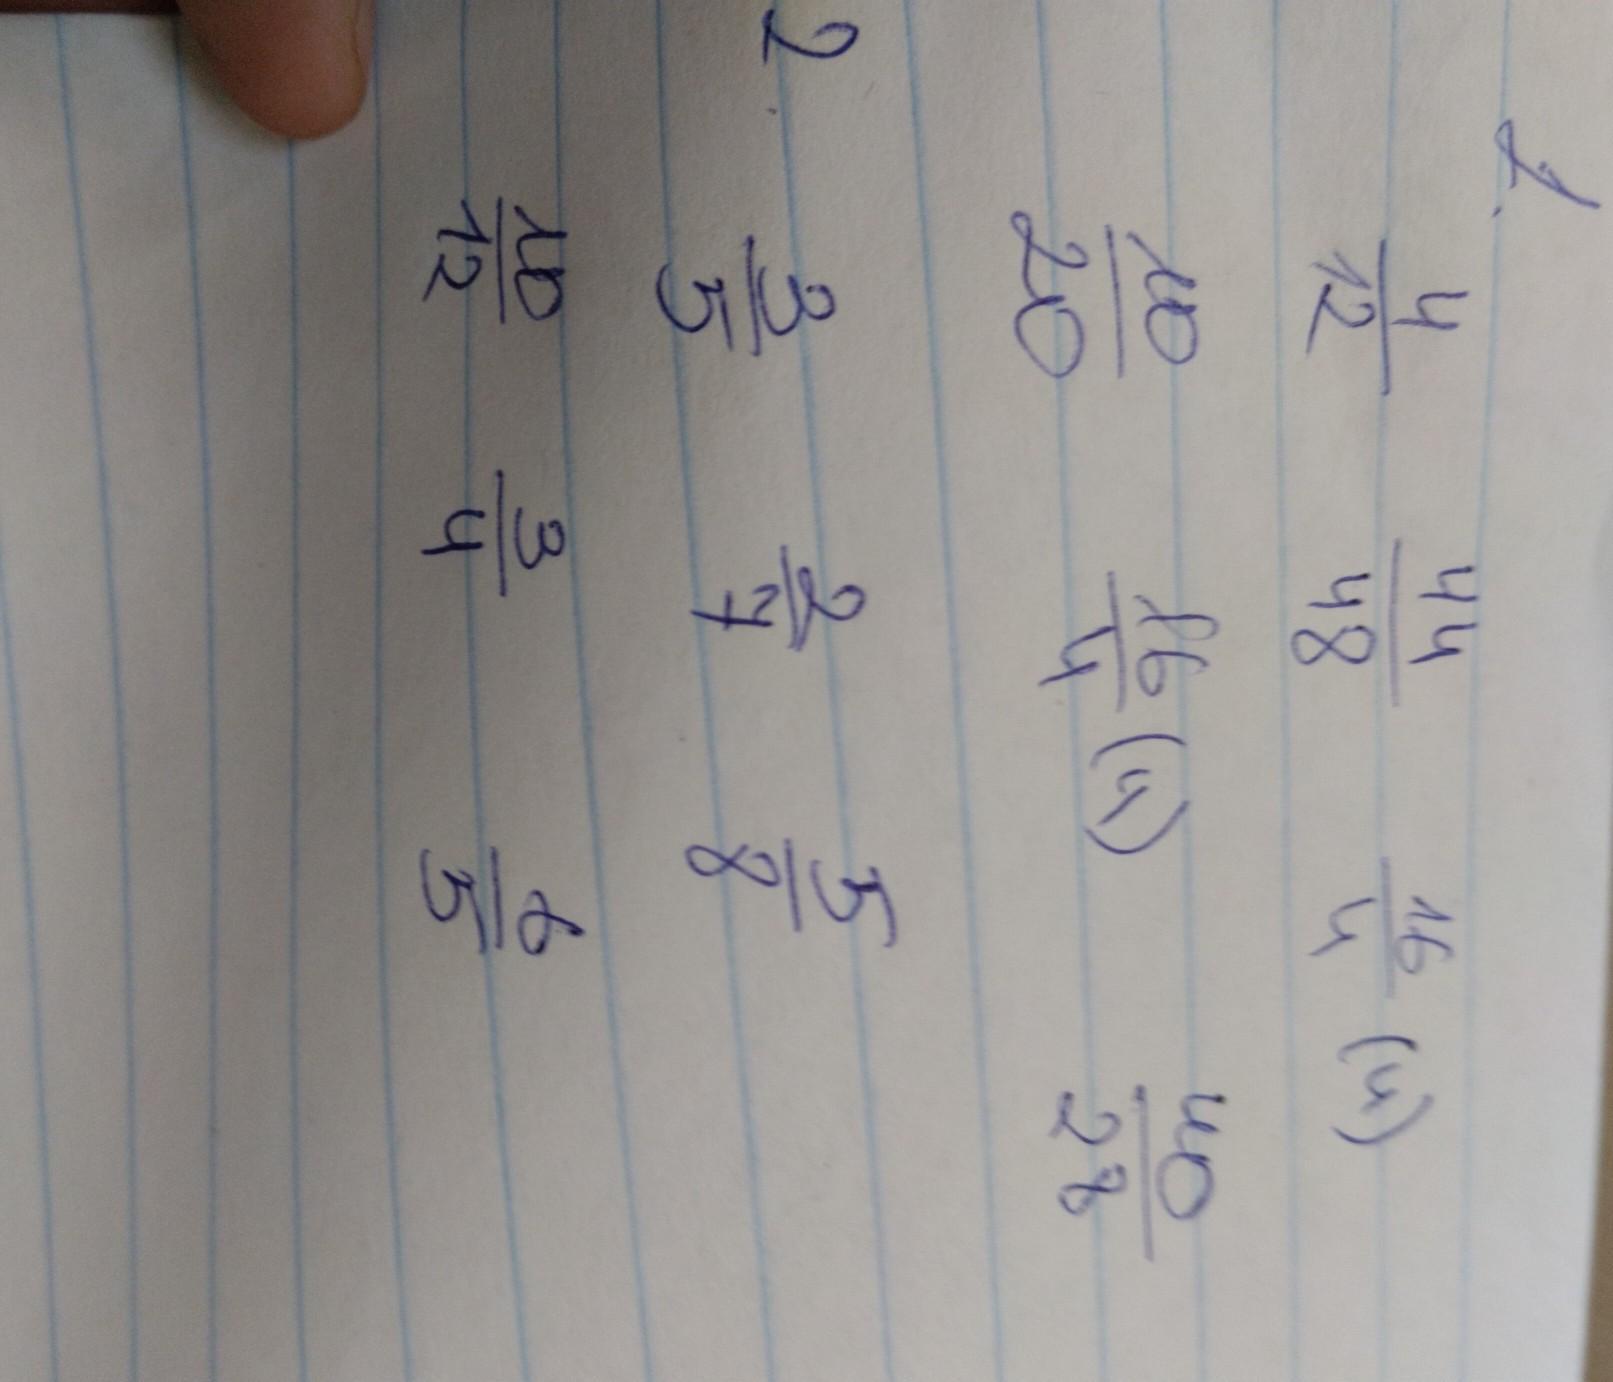 1.
4/12 44/48 16/4 (4)
10/20 16/4 (4) 40/28
2.
3/5 2/7 5/8
10/12 3/4 6/5